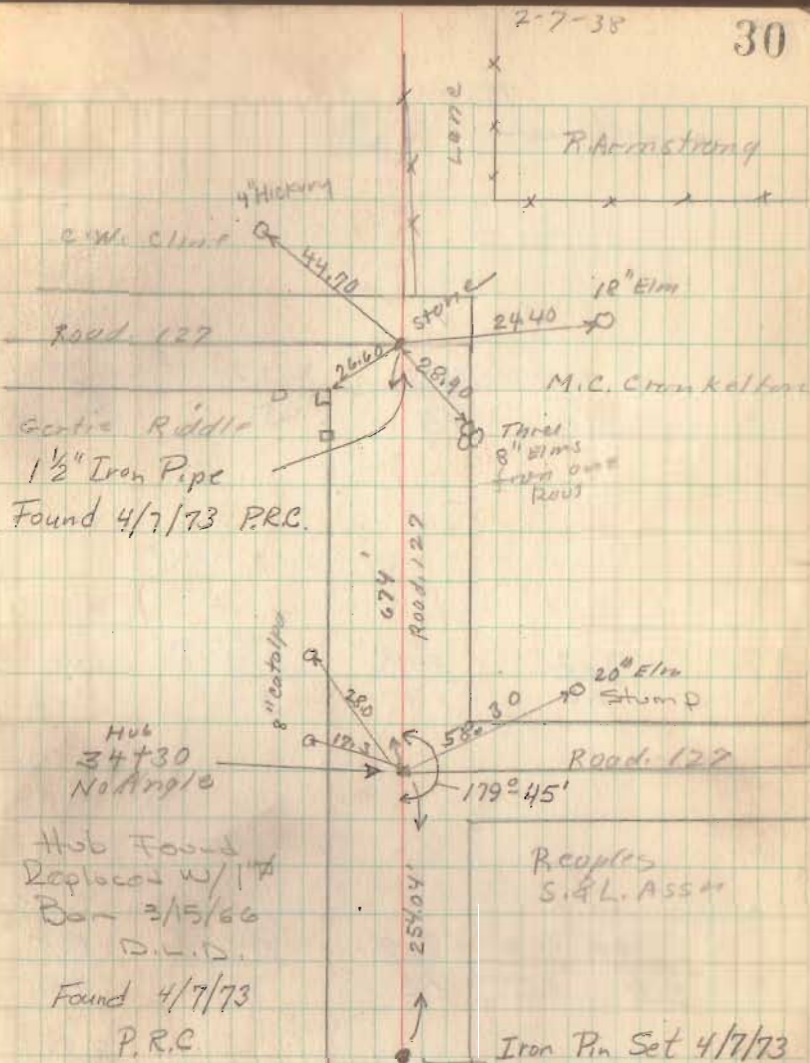 2-7-38
30
Lane
R. Armstrong
4" Hickory
C.W. Cline
44.70
Stone
18" Elm
24.40
Road. 127
26.60
28.90
M.C. Crankelton
Gertie Riddle
Three
8" Elms
from one
1 1/2" Iron Pipe
Found 4/7/73 P.R.C.
674'
Road. 127
8" Catalpa
28.0
17.3
58.30
20" Elm
Stump
Hub
34+30
No Angle
Road. 127
179° 45'
Hub Found
Replaced w/ 1"
3/15/66
D.L.D.
Peoples
S.&L. Assn
254.04'
Found 4/7/73
P.R.C
Iron Pin Set 4/7/73